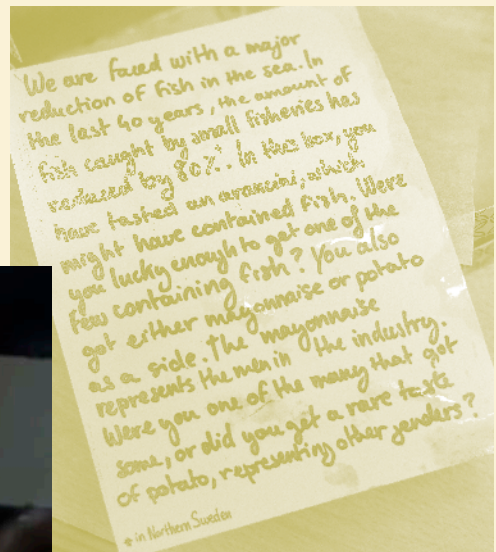 We are faced with a major
reduction of fish in the sea. In
the last 40 years, the amount of
fish caught by small fisheries has
reduced by 80%*. In this box, you
have tasted an arancini, which
might have contained fish. Were
you lucky enough to get one of the
few containing fish? You also
got either mayonnaise or potato
as a side. The mayonnaise
represents the men in the industry.
Were you one of the many that got
some, or did you get a rare taste
of potato, representing other genders?
* in Northern Sweden